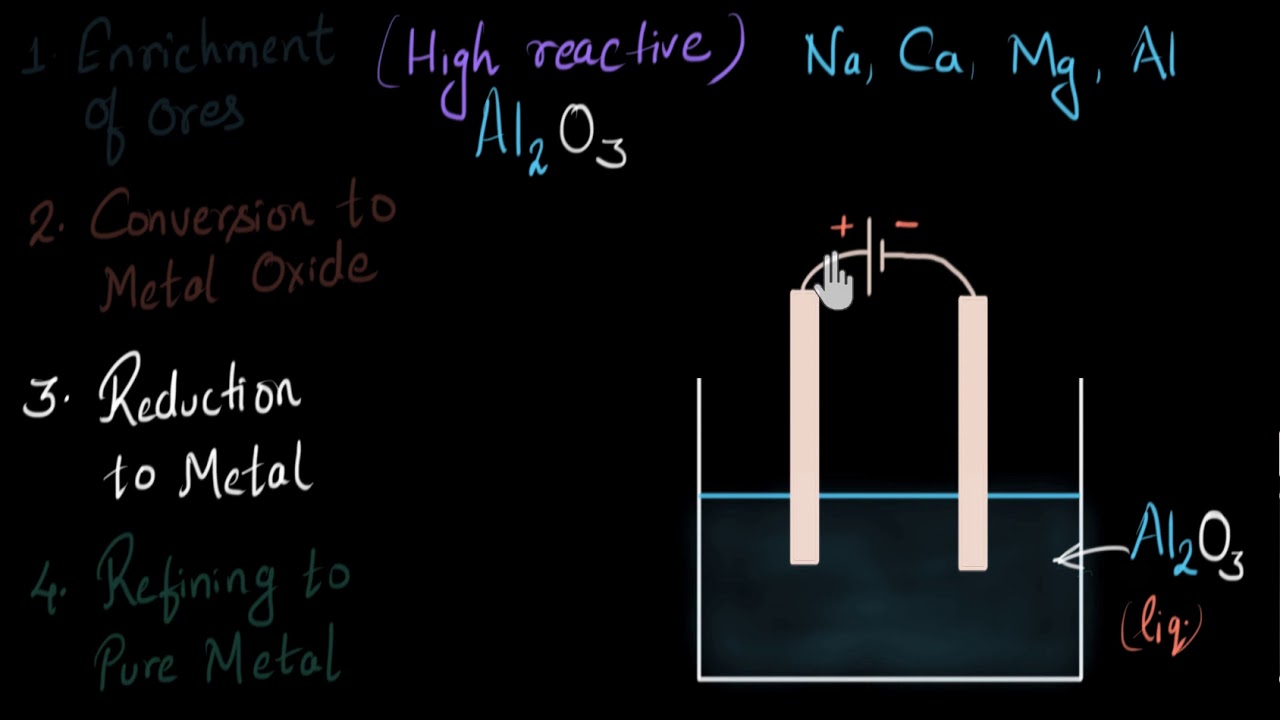 1. Enrichment
of ores
(High reactive) Na, Ca, Mg, Al
Al₂O₃
2. Conversion to
Metal Oxide
+ -
3. Reduction
to Metal
Al₂O₃
(liq)
4. Refining to
Pure Metal